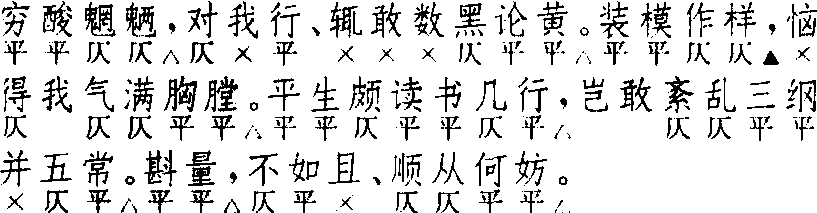 穷酸魍魉，对我行、辄敢数黑论黄。装模作样，恼
平平仄仄△仄×平×××仄平平△平平仄仄▲×
得我气满胸膛。平生颇读书几行，岂敢紊乱三纲
仄仄仄平平△平平仄平平仄平△仄仄平平
并五常。斟量，不如且、顺从何妨。
×仄平△平平△仄平×仄仄平平△